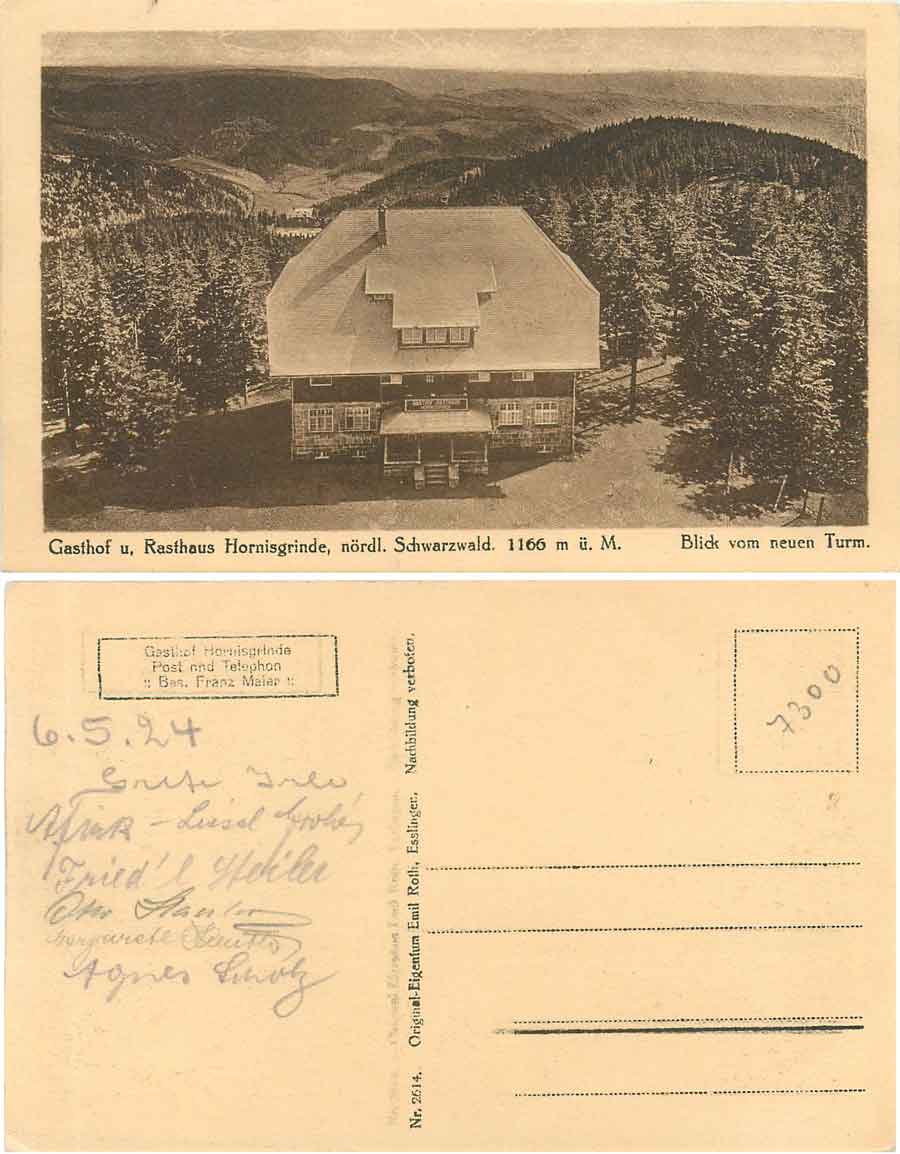 Gasthof u, Rasthaus Hornisgrinde, nördl. Schwarzwald. 1166 m ü. M. Blick vom neuen Turm.
Gasthof Hornisgrinde
Post und Telephon
:: Bes. Franz Maier ::
6.5.24
Grete
Fink - Liesel
Fried'l Steiler
Otto
Margarete
Agnes Scholz
Nr. 2614. Original-Eigentum Emil Roth, Esslingen, Nachbildung verboten.
7300